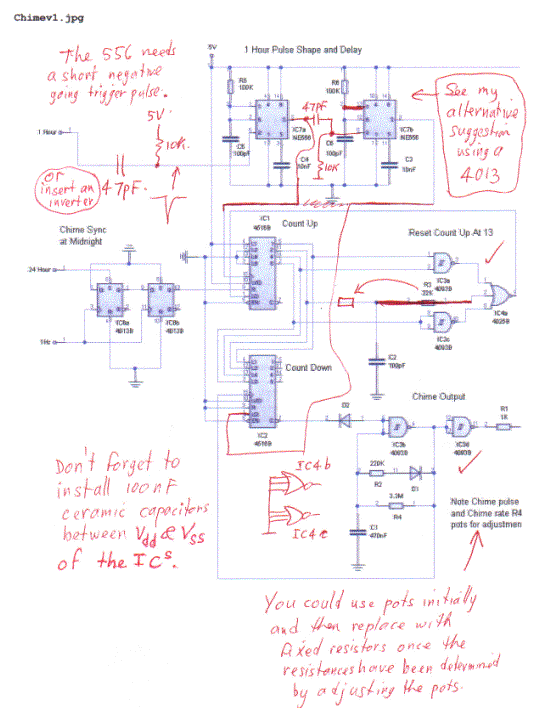 Chimev1.jpg
The 556 needs
a short negative
going trigger pulse.
5V
1 Hour Pulse Shape and Delay
5V
10K
1 Hour
or
insert an
inverter
47pF
R5
100K
R6
100K
IC7a
NE556
47pF
IC7b
NE556
C5
100pF
C4
10nF
C6
100pF
10K
C3
10nF
See my
alternative
suggestion
using a
4013
Chime Sync
at Midnight
24 Hour
1Hz
IC8a
4013B
IC8b
4013B
IC1
4516B
Count Up
Reset Count Up At 13
IC3a
4093B
R3
22K
IC4a
4025B
IC3c
4093B
C2
100pF
Count Down
IC2
4516B
Chime Output
D2
IC3b
4093B
IC3d
4093B
R1
1K
220K
R2
D1
3.3M
R4
C1
470nF
IC4b
IC4c
Note Chime pulse
and Chime rate R4
pots for adjustmen
Don't forget to
install 100nF
ceramic capacitors
between Vdd & Vss
of the ICs.
You could use pots initially
and then replace with
fixed resistors once the
resistances have been determined
by adjusting the pots.